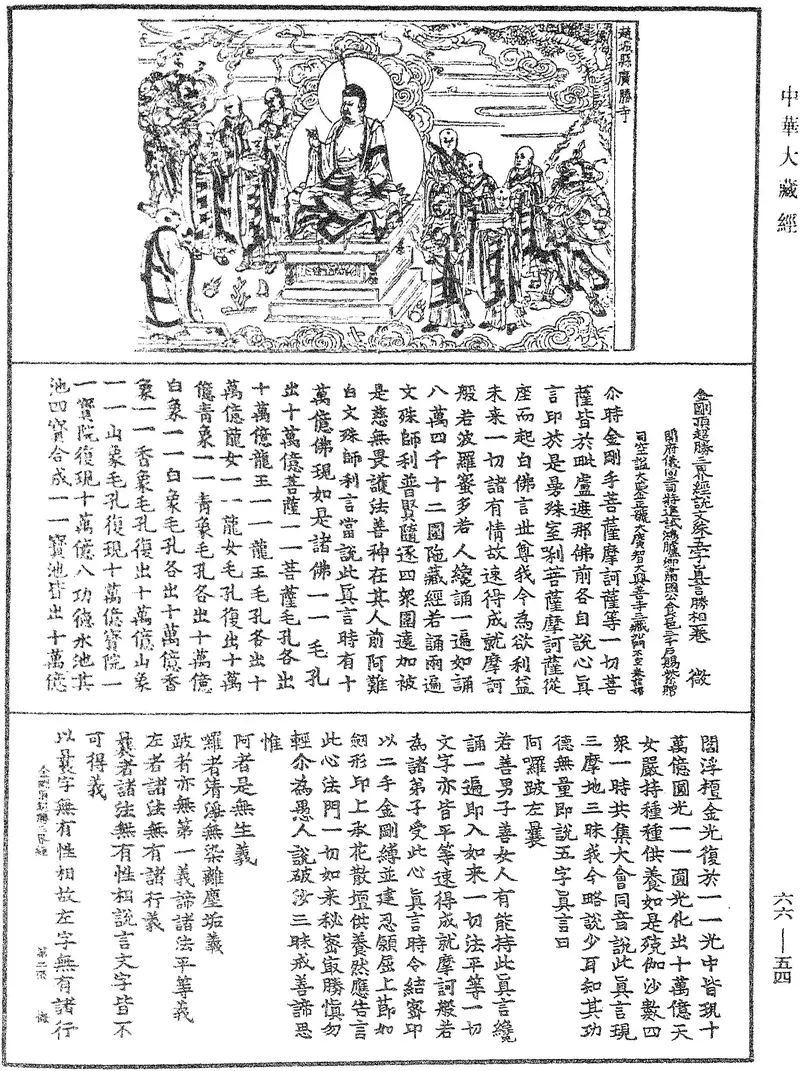 中華大藏經
趙城縣廣勝寺
金剛頂超勝三界經說文殊五字真言勝相一卷　微
開府儀同三司特進試鴻臚卿肅國公食邑三千戶賜紫贈
司空謚大鑒正號大廣智大興善寺三藏沙門不空奉詔譯
尒時金剛手菩薩摩訶薩等一切菩
薩皆於毗盧遮那佛前各自說心真
言印於是曼殊室唎菩薩摩訶薩從
座而起白佛言世尊我今為欲利益
未來一切諸有情故速得成就摩訶
般若波羅蜜多若人纔誦一遍如誦
八萬四千十二圍陁藏經若誦兩遍
文殊師利普賢隨逐四衆圍遶加被
是慈無畏護法善神在其人前阿難
白文殊師利言當說此真言時有十
萬億佛現如是諸佛一一毛孔
出十萬億菩薩一一菩薩毛孔各出
十萬億龍王一一龍王毛孔各出十
萬億龍女一一龍女毛孔復出十萬
億青象一一青象毛孔各出十萬億
白象一一白象毛孔各出十萬億香
象一一香象毛孔復出十萬億山象
一一山象毛孔復現十萬億寶院一
一寶院復現十萬億八功德水池其
池四寶合成一一寶池皆出十萬億
閻浮檀金光復於一一光中皆現十
萬億圓光一一圓光化出十萬億天
女嚴持種種供養如是殑伽沙數四
衆一時共集大會同音說此真言現
三摩地三昧我今略說少耳知其功
德無量即說五字真言曰
阿囉跛左曩
若善男子善女人有能持此真言纔
誦一遍即入如來一切法平等一切
文字亦皆平等速得成就摩訶般若
為諸弟子受此心真言時令結密印
以二手金剛縛並建忍願屈上節如
劒形印上承花散壇供養然應告言
此心法門一切如來秘密最勝慎勿
輕尒為愚人說破汝三昧戒善諦思
惟
阿者是無生義
囉者清淨無染離塵垢義
跛者亦無第一義諦諸法平等義
左者諸法無有諸行義
曩者諸法無有性相說言文字皆不
可得義
以曩字無有性相故左字無有諸行
金剛頂超勝三界經　第二張　微
六六—五四